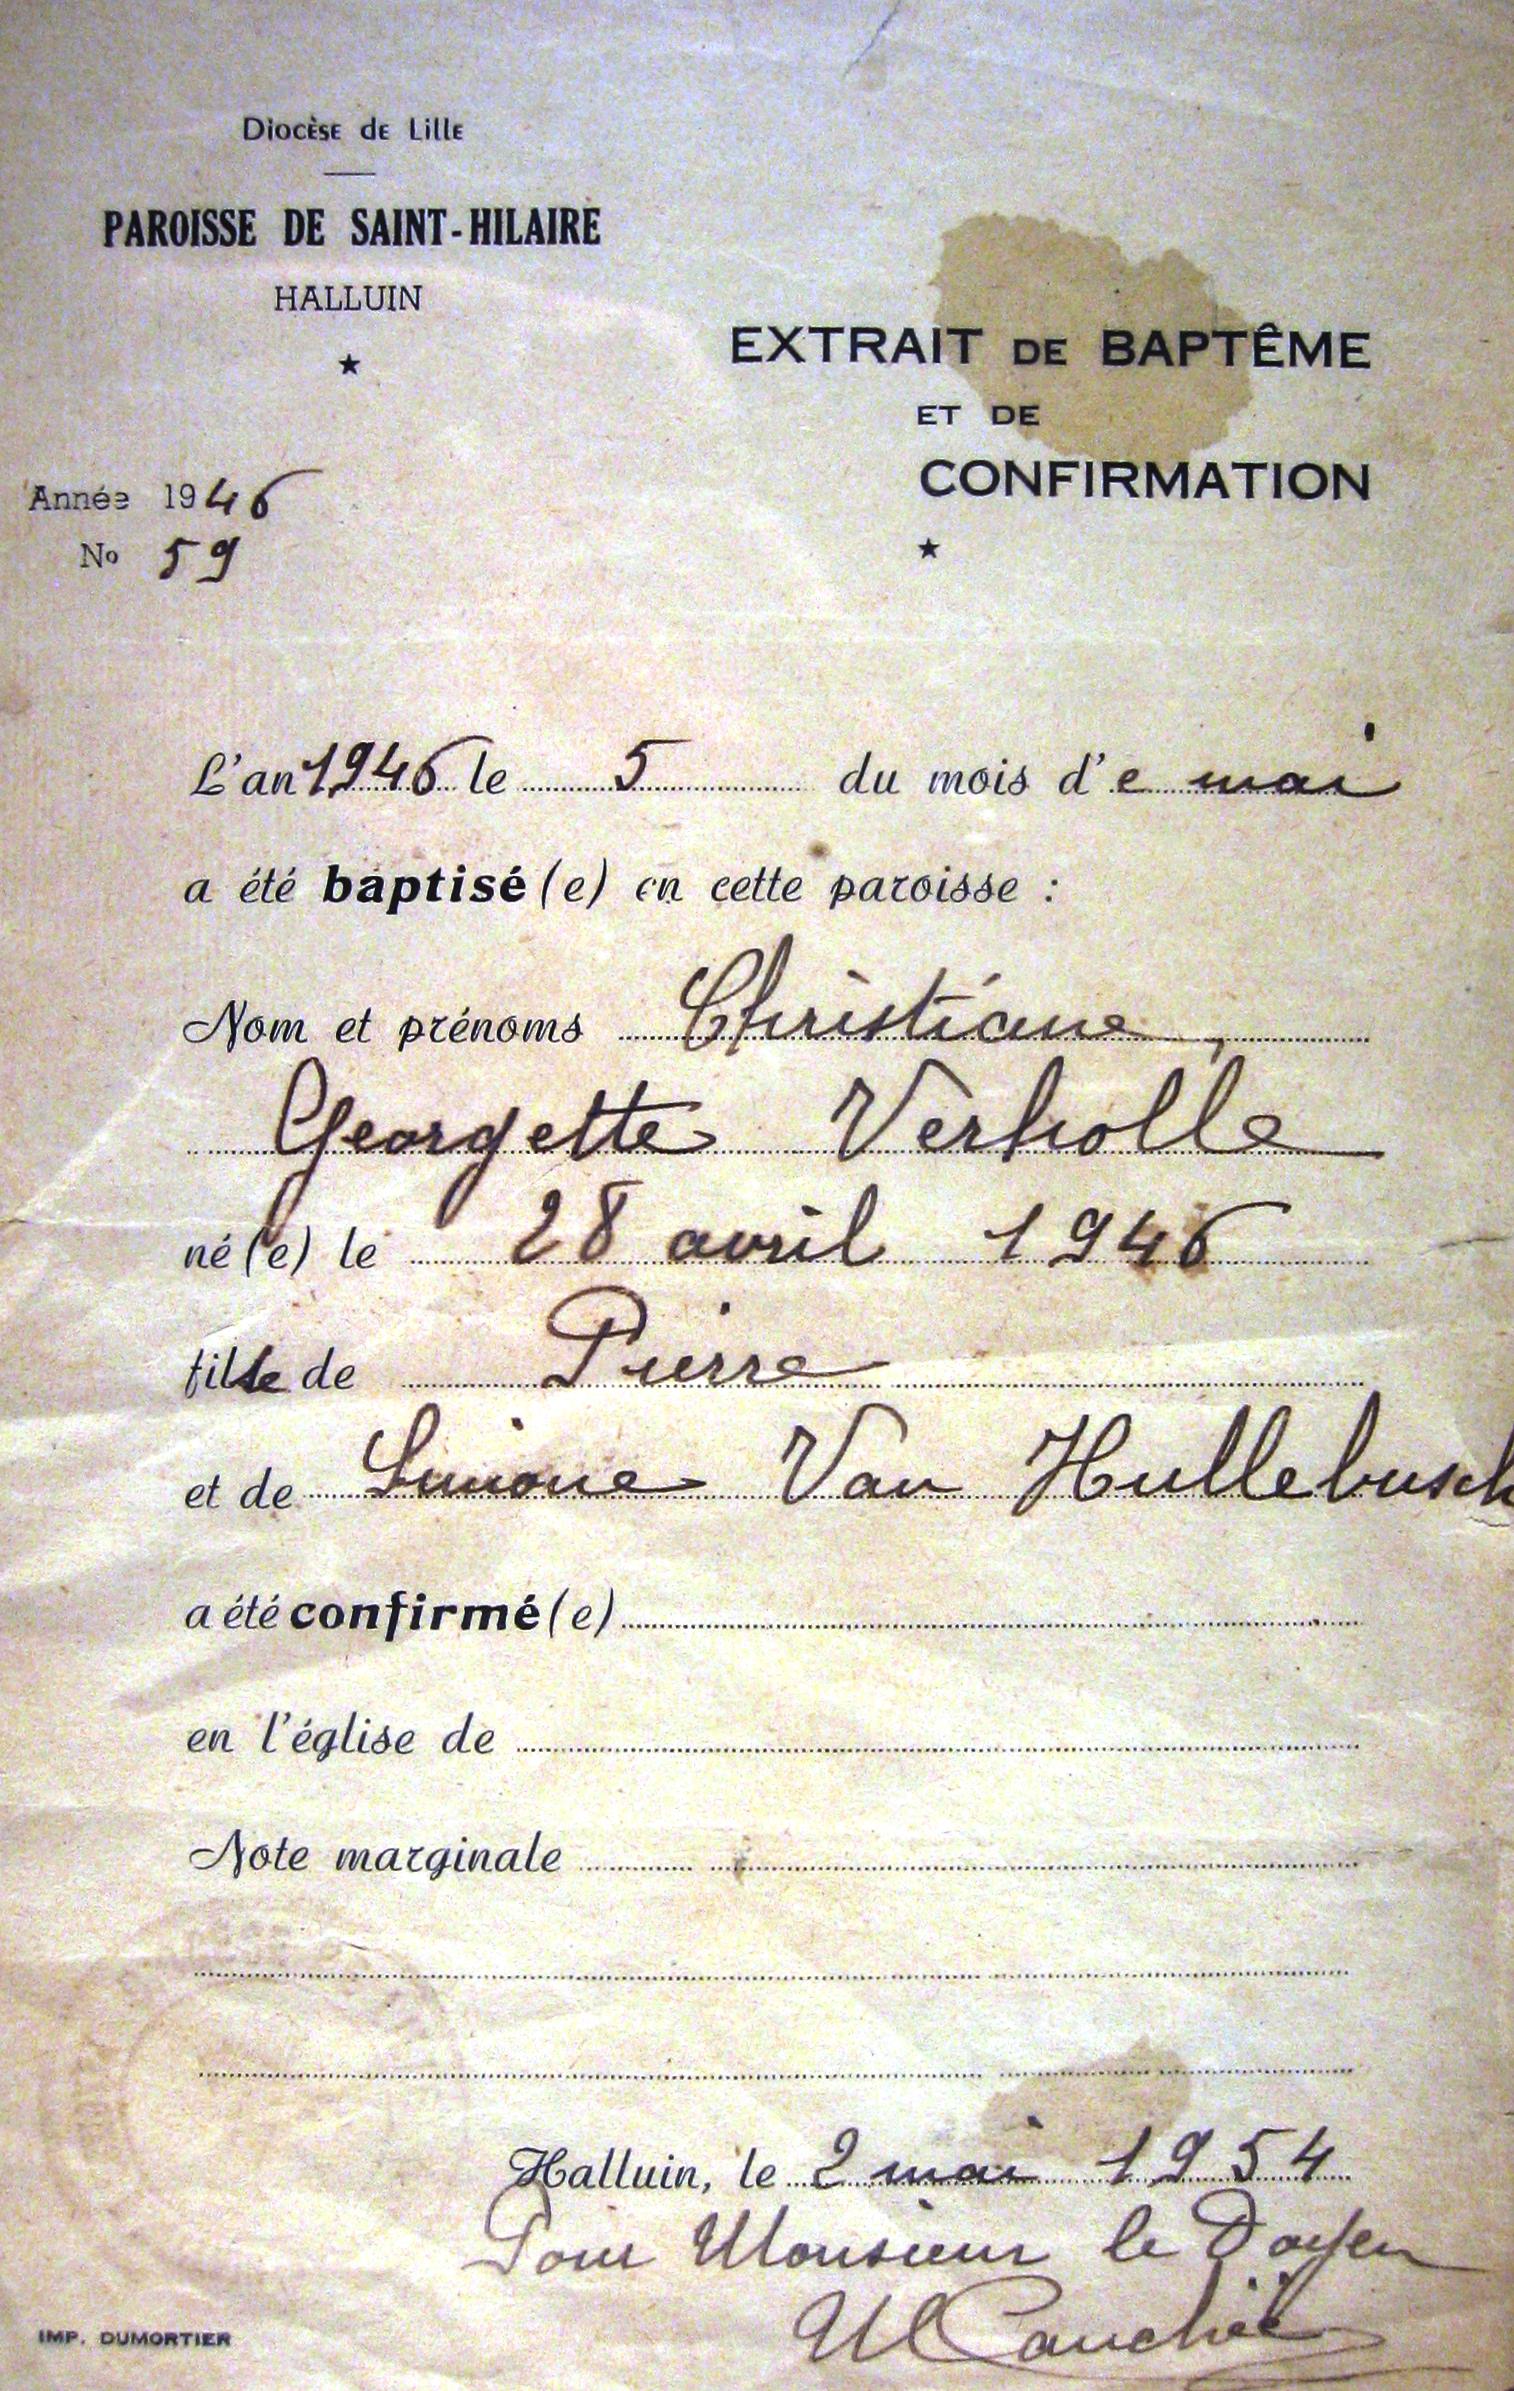 Diocèse de Lille
PAROISSE DE SAINT-HILAIRE
HALLUIN
EXTRAIT DE BAPTÊME
ET DE
CONFIRMATION
Année 1946
No 59
L'an 1946 le 5 du mois d'e mai
a été baptisé(e) en cette paroisse :
Nom et prénoms Christiane,
Georgette Verholle
né(e) le 28 avril 1946
fille de Pierre
et de Simone Van Hullebusch
a été confirmé(e)
en l'église de
Note marginale
Halluin, le 2 mai 1954
Pour Monsieur le Doyen
IMP. DUMORTIER